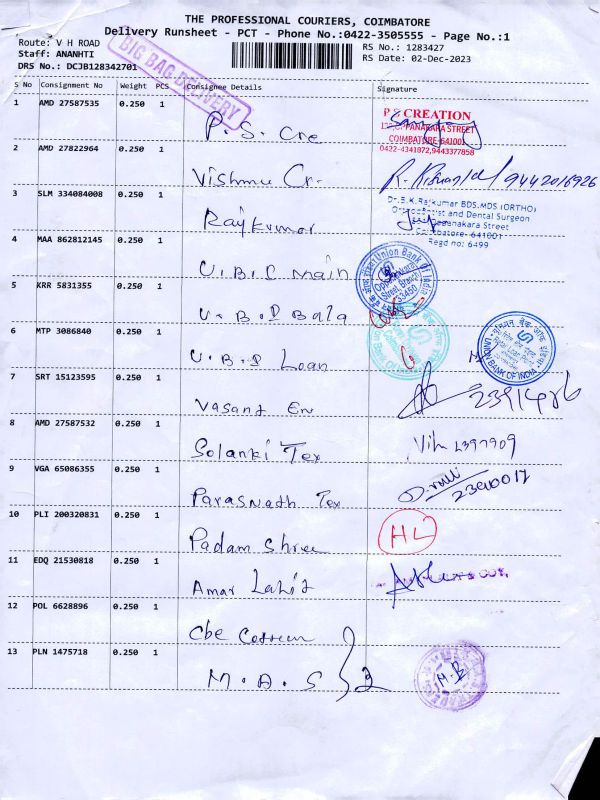 THE PROFESSIONAL COURIERS, COIMBATORE
Delivery Runsheet - PCT - Phone No.:0422-3505555 - Page No.:1
Route: V H ROAD
RS No.: 1283427
Staff: ANANHTI
RS Date: 02-Dec-2023
DRS No.: DCJB128342701
BIG BAG DELIVERY
S No Consignment No Weight PCS Consignee Details Signature
1 AMD 27587535 0.250 1 P.S. Cre
P.S CREATION
PANAKARA STREET
COIMBATORE-641001
0422-4341872,9443377858
2 AMD 27822964 0.250 1 Vishnu Cr. 9442016926
3 SLM 334084008 0.250 1 Rajkumar
Dr.B.K.Rajkumar BDS.MDS (ORTHO)
Orthodontist and Dental Surgeon
Street
Coimbatore- 641001
Regd no: 6499
4 MAA 862812145 0.250 1 U.B.I Main
Union Bank of India
5 KRR 5831355 0.250 1 U.B.I Bala
6 MTP 3086840 0.250 1 U.B.I Loan
UNION BANK OF INDIA
7 SRT 15123595 0.250 1 Vasant En 2391486
8 AMD 27587532 0.250 1 Solanki Tex 2397709
9 VGA 65086355 0.250 1 Parasnath Tex 2390017
10 PLI 200320831 0.250 1 Padam Shree
11 EDQ 21530818 0.250 1 Amar Lahit
12 POL 6628896 0.250 1 Cbe Cotteen
13 PLN 1475718 0.250 1 M.A.S 2 M.B